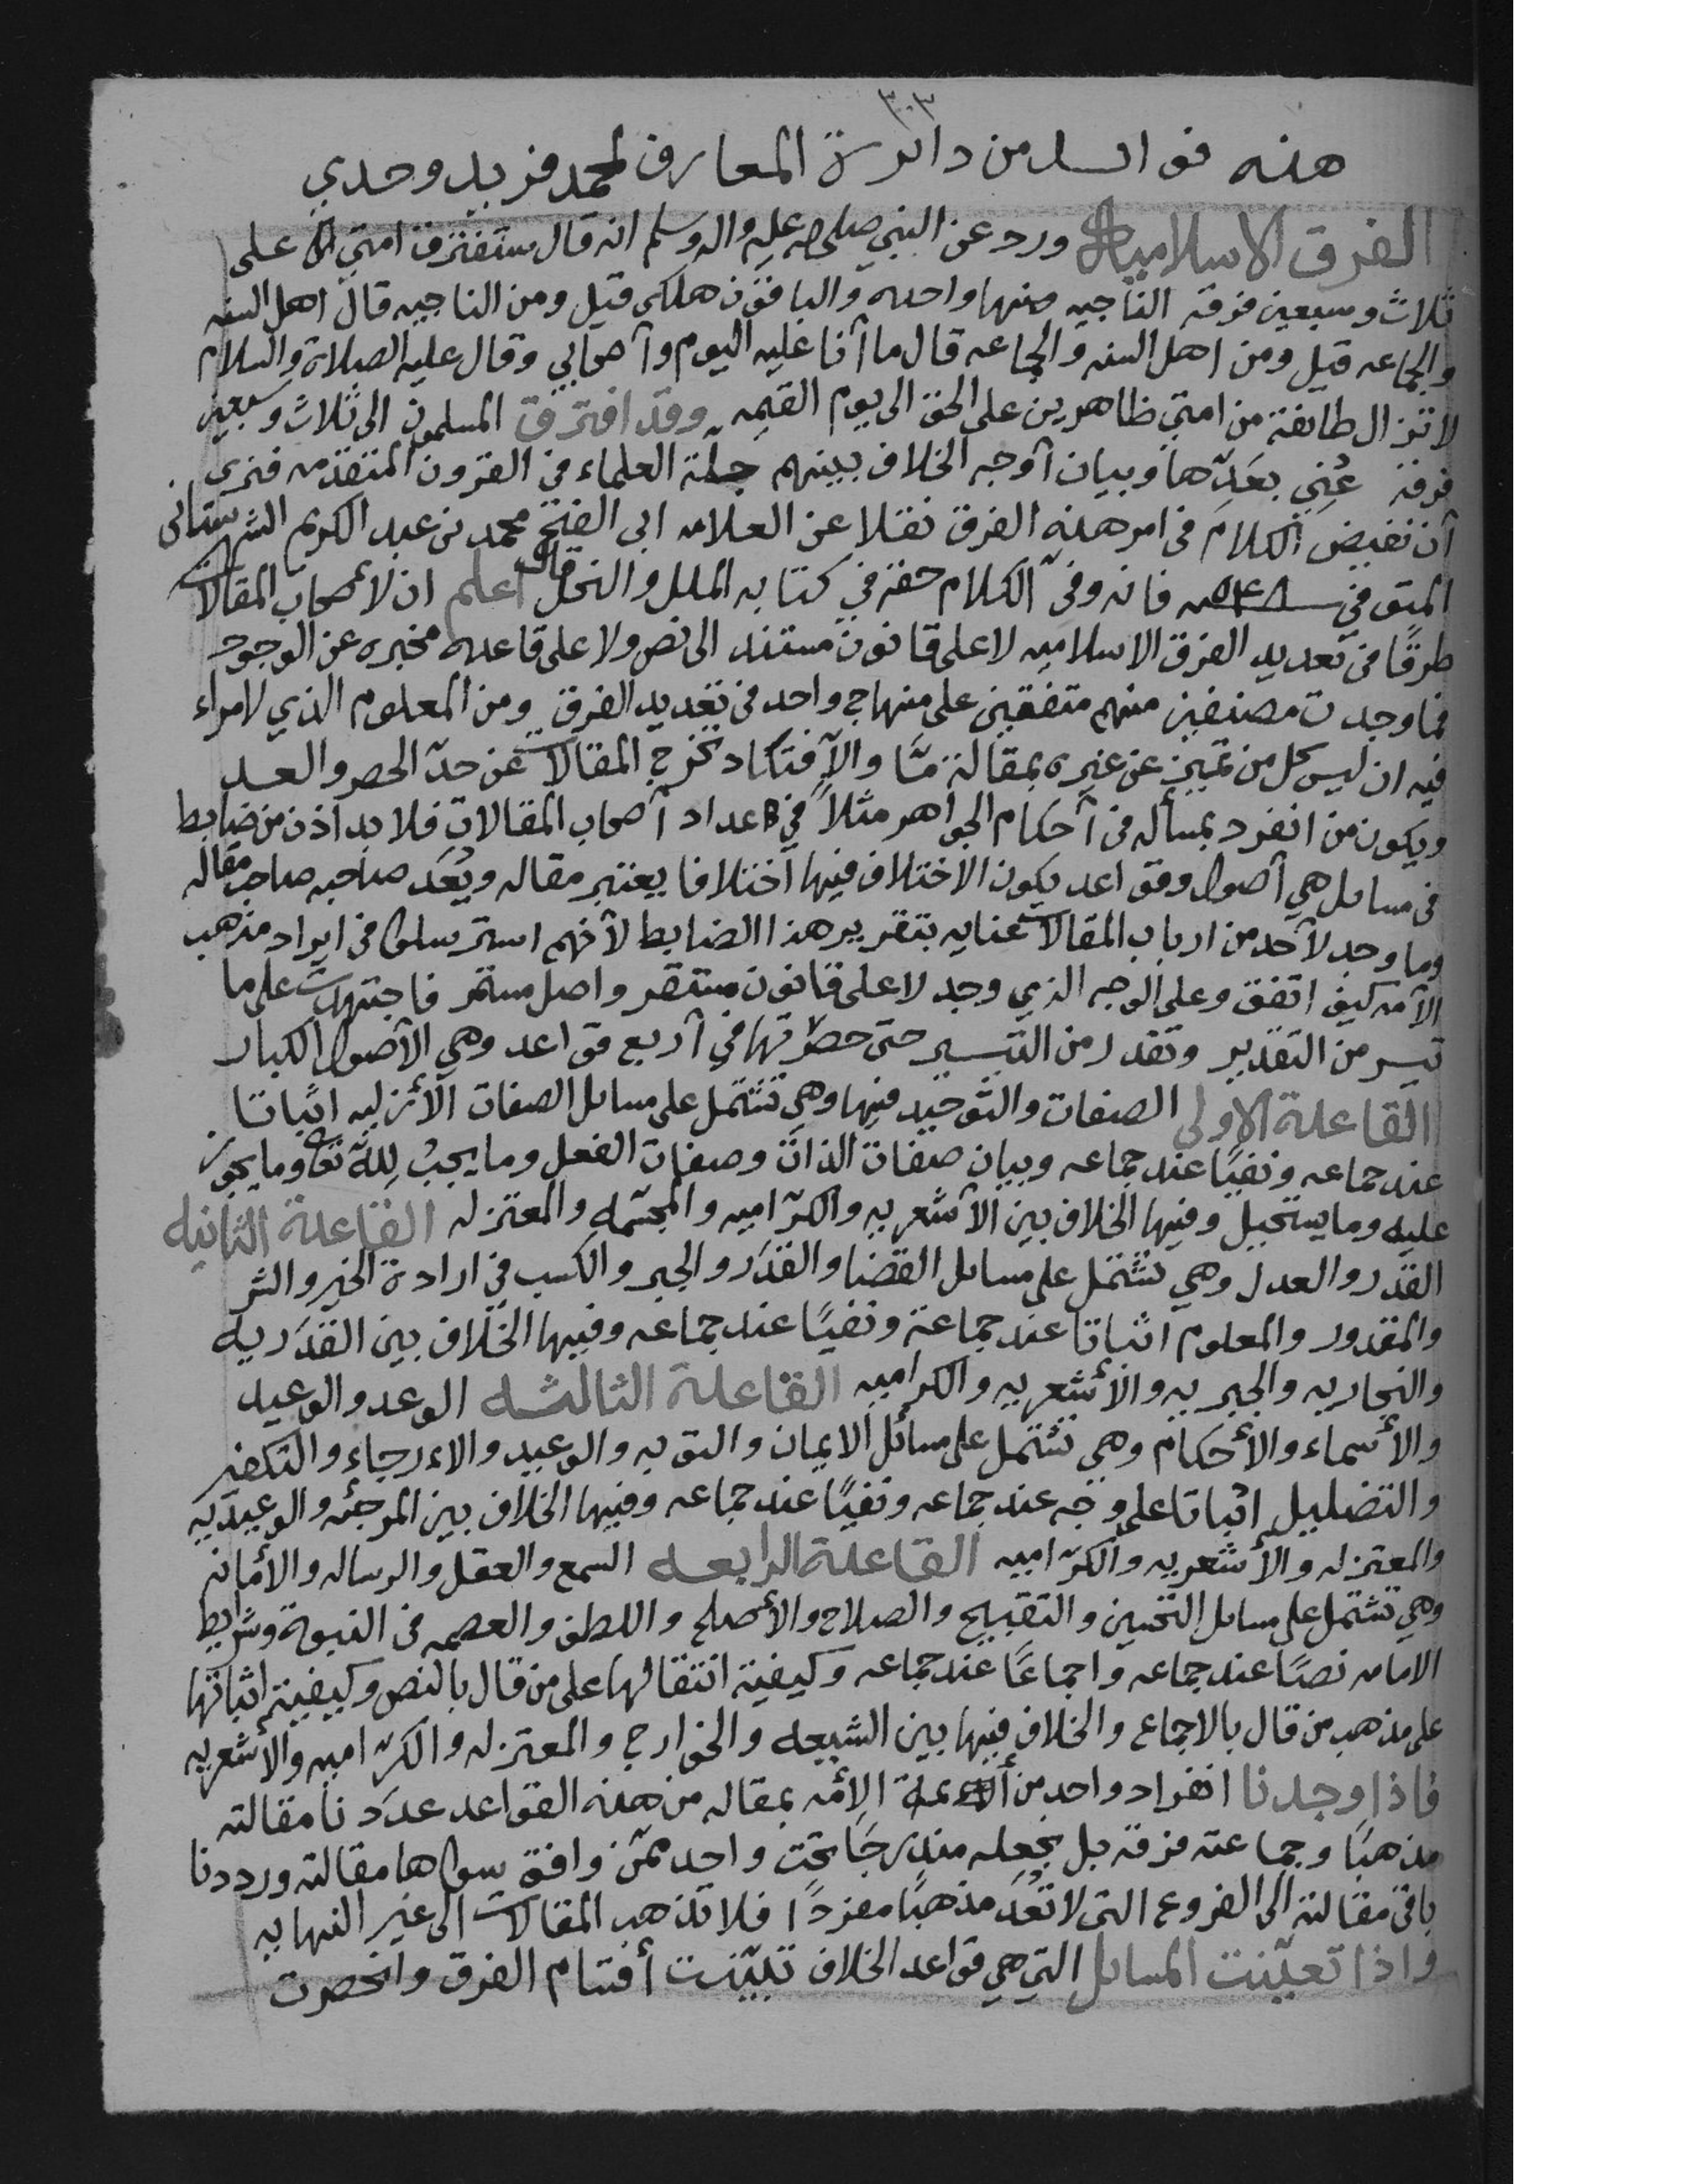 ٣٠٣
هذه فوائد من دائرة المعارف لمحمد فريد وحدي
الفرق الاسلاميه ورد عن النبي صلى الله عليه واله وسلم انه قال ستفترق امتي على
ثلاث وسبعين فرقه الناجيه منها واحده والباقون هلكى قيل ومن الناجيه قال اهل السنه
والجماعه قيل ومن اهل السنه والجماعه قال ما أنا عليه اليوم وأصحابي وقال عليه الصلاة والسلام
لا تزال طائفة من امتي ظاهرين على الحق الى يوم القيمه وقد افترق المسلمون الى ثلاث وسبعين
فرقة عُني بعَدّها وبيان أوجه الخلاف بينهم جلّة العلماء في القرون المتقدمه فنرى
أن نفيض الكلام في امر هذه الفرق نقلا عن العلامه ابى الفتح محمد بن عبد الكريم الشهرستانى
المتوفى سنه ٥٤٨ فانه وفى الكلام حقه في كتابه الملل والنحل قال اعلم ان لأصحاب المقالات
طرقًا في تعديد الفرق الاسلاميه لا على قانون مستند الى نص ولا على قاعده مخبره عن الوجود
فما وجدت مصنفين منهم متفقين على منهاج واحد في تعديد الفرق ومن المعلوم الذي لا مراء
فيه ان ليس كل من تميز عن غيره بمقالة مّا والاّ فتكاد تخرج المقالات عن حدّ الحصر والعد
ويكون من انفرد بمسأله في أحكام الجواهر مثلاً في اعداد أصحاب المقالات فلا بد اذن من ضابط
في مسائل هي أصول وقواعد يكون الاختلاف فيها اختلافا يعتبر مقاله ويُعَد صاحبه صاحب مقاله
وما وجد لأحد من ارباب المقالات عنايه بتقرير هذا الضابط لأنهم استرسلوا في ايراد مذهب
الأمه كيف اتفق وعلى الوجه الذي وجد لا على قانون مستقر واصل مستمر فاجتهدت على ما
تيسر من التقدير وتقدر من التيسير حتى حصرتها في أربع قواعد وهي الأصول الكبار
القاعدة الاولى الصفات والتوحيد فيها وهي تشتمل على مسائل الصفات الأزليه اثباتا
عند جماعه ونفيًا عند جماعه وبيان صفات الذات وصفات الفعل وما يجبُ لِلّه تعا وما يجوز
عليه وما يستحيل وفيها الخلاف بين الأشعريه والكرّاميه والمجسّمه والمعتزله القاعدة الثانيه
القدر والعدل وهي تشتمل على مسائل القضا والقدَر والجبر والكسب في ارادة الخير والشر
والمقدور والمعلوم اثباتا عند جماعة ونفيًا عند جماعه وفيها الخلاف بين القدَريه
والنجاريه والجبريه والأشعريه والكراميه القاعدة الثالثه الوعد والوعيد
والأسماء والأحكام وهي تشتمل على مسائل الايمان والتوبه والوعيد والارجاء والتكفير
والتضليل اثباتا على وجه عند جماعه ونفيًا عند جماعه وفيها الخلاف بين المرجئه والوعيديّه
والمعتزله والأشعريه والكرّاميه القاعدة الرابعه السمع والعقل والرساله والأمانه
وهي تشتمل على مسائل التحسين والتقبيح والصلاح والأصلح واللطف والعصمه في النبوة وشرائط
الامامه نصًا عند جماعه واجماعًا عند جماعه وكيفية انتقالها على من قال بالنص وكيفية اثباتها
على مذهب من قال بالاجماع والخلاف فيها بين الشيعه والخوارج والمعتزله والكرّاميه والأشعريه
فاذا وجدنا انفراد واحد من أئمة الأمه بمقاله من هذه القواعد عدَدنا مقالته
مذهبًا وجماعته فرقه بل نجعله مندرجًا تحت واحد ممّن وافق سواها مقالته ورددنا
باقي مقالته الى الفروع التى لا تُعَد مذهبًا مفردًا فلا تذهب المقالات الى غير النهايه
واذا تعيّنت المسائل التي هي قواعد الخلاف تبيّنت أقسام الفرق وانحصرت